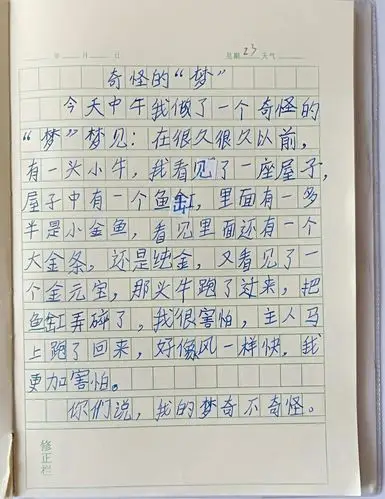 年 月 日 星期 23 天气
奇怪的“梦”
今天中午我做了一个奇怪的
“梦”梦见：在很久很久以前，
有一头小牛，我看见了一座屋子，
屋子中有一个鱼缸，里面有一多
半是小金鱼，看见里面还有一个
大金条，还是纯金，又看见了一
个金元宝，那头牛跑了过来，把
鱼缸弄碎了，我很害怕，主人马
上跑了回来，好像风一样快，我
更加害怕。
你们说，我的梦奇不奇怪。
修正栏